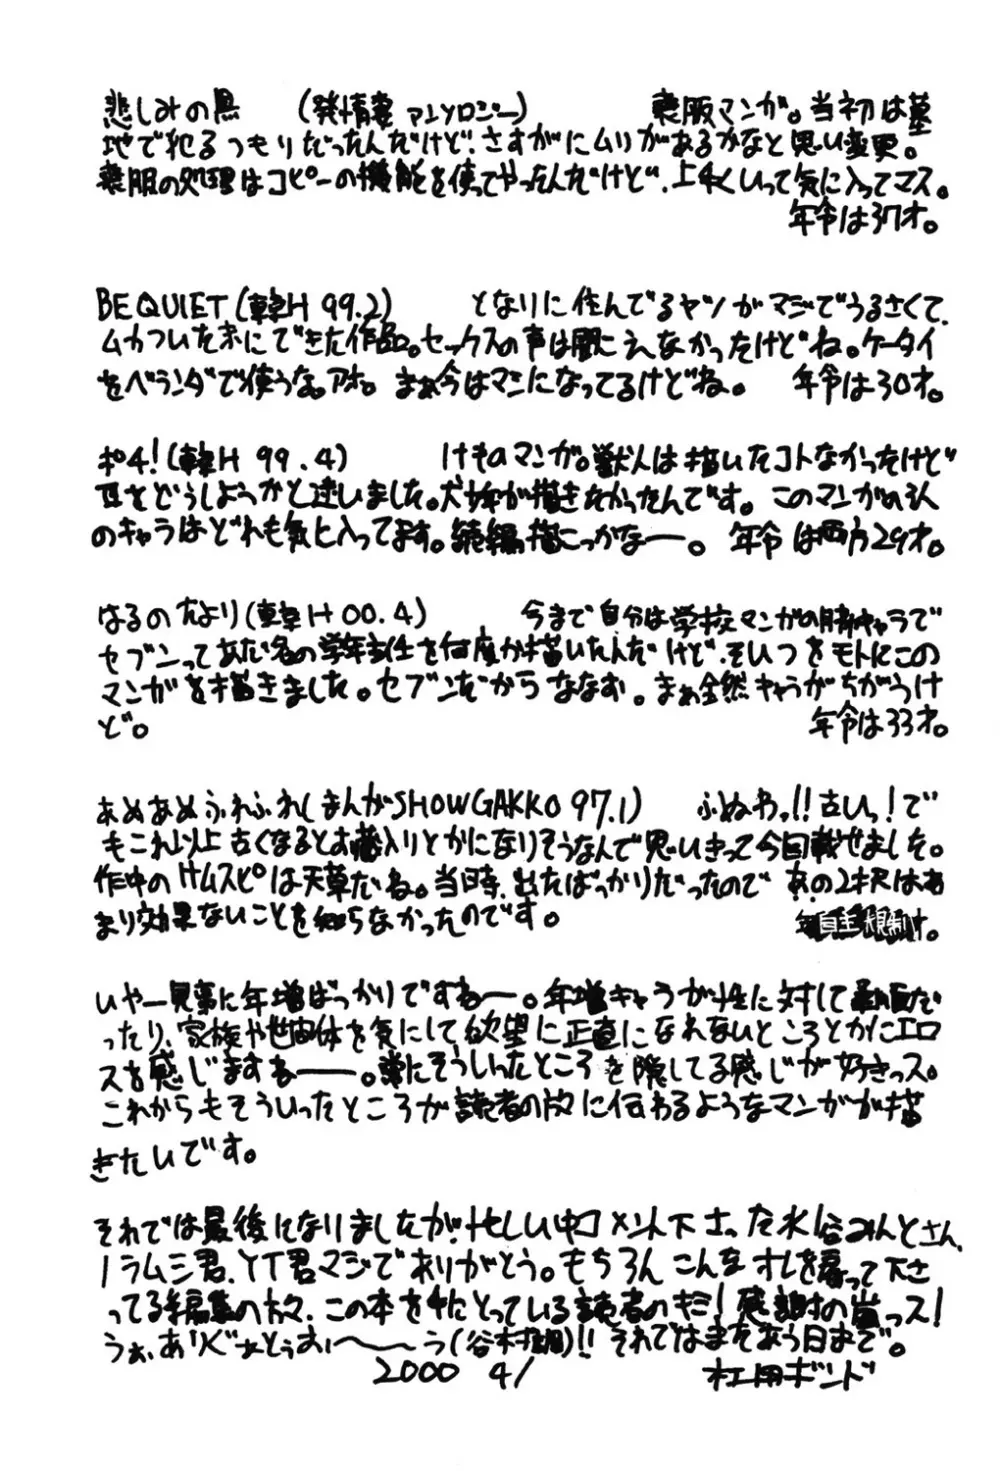 悲しみの黒　(発情妻アンソロジー)　喪服マンガ。当初は墓
地で犯るつもりだったんだけど、さすがにムリがあるかなと思い変更。
喪服の処理はコピーの機能を使ってやったんだけど、上手くいって気に入ってマス。
年令は37才。
BE QUIET(華H 99.2)　となりに住んでるヤツがマジでうるさくて、
ムカついた末にできた作品。セックスの声は聞こえなかったけどね。ケータイ
をベランダで使うな。アホ。まぁ今はマシになってるけどね。　年令は30才。
ポチ!(華H 99.4)　けものマンガ。獣人は描いたコトなかったけど
耳をどうしようかと迷いました。犬が描きたかったんです。このマンガの3人
のキャラはどれも気に入ってます。続編描こっかなー。年令は両方29才。
はるのたより(華H 00.4)　今まで自分は学校マンガの脇キャラで
セブンってあだ名の学年主任を何度か描いたんだけど、そいつをモトにこの
マンガを描きました。セブンだからななお。まぁ全然キャラがちがうけ
ど。　年令は33才。
あめあめふれふれ(まんがSHOWGAKKO 97.1)　ふぬわっ!!古いっ!で
もこれ以上古くなるとお蔵入りとかになりそうなんで思いきって今回載せました。
作中のサムスピは天草だね。当時、出たばっかりだったので あの2択はあ
まり効果ないことを知らなかったのです。　自主規制
いやー見事に年増ばっかりですねー。年増キャラが性に対して だ
ったり、家族や世間体を気にして欲望に正直になれないところとかにエロ
スを感じますねー。常にそういったところを隠してる感じが好きっス。
これからもそういったところが読者の方に伝わるようなマンガが描
きたいです。
それでは最後になりましたが、忙しい中コメント下さった水谷みんとさん、
ノラムシ君、YT君マジでありがとう。もちろんこんなオレを 下さ
ってる編集の方々、この本を手にとっている読者のキミ!感謝の嵐っス!
うぉ、ありぐぁとぅおぃ〜う(谷村 )!!それではまた会う日まで。
2000 4/　杠用ボンド